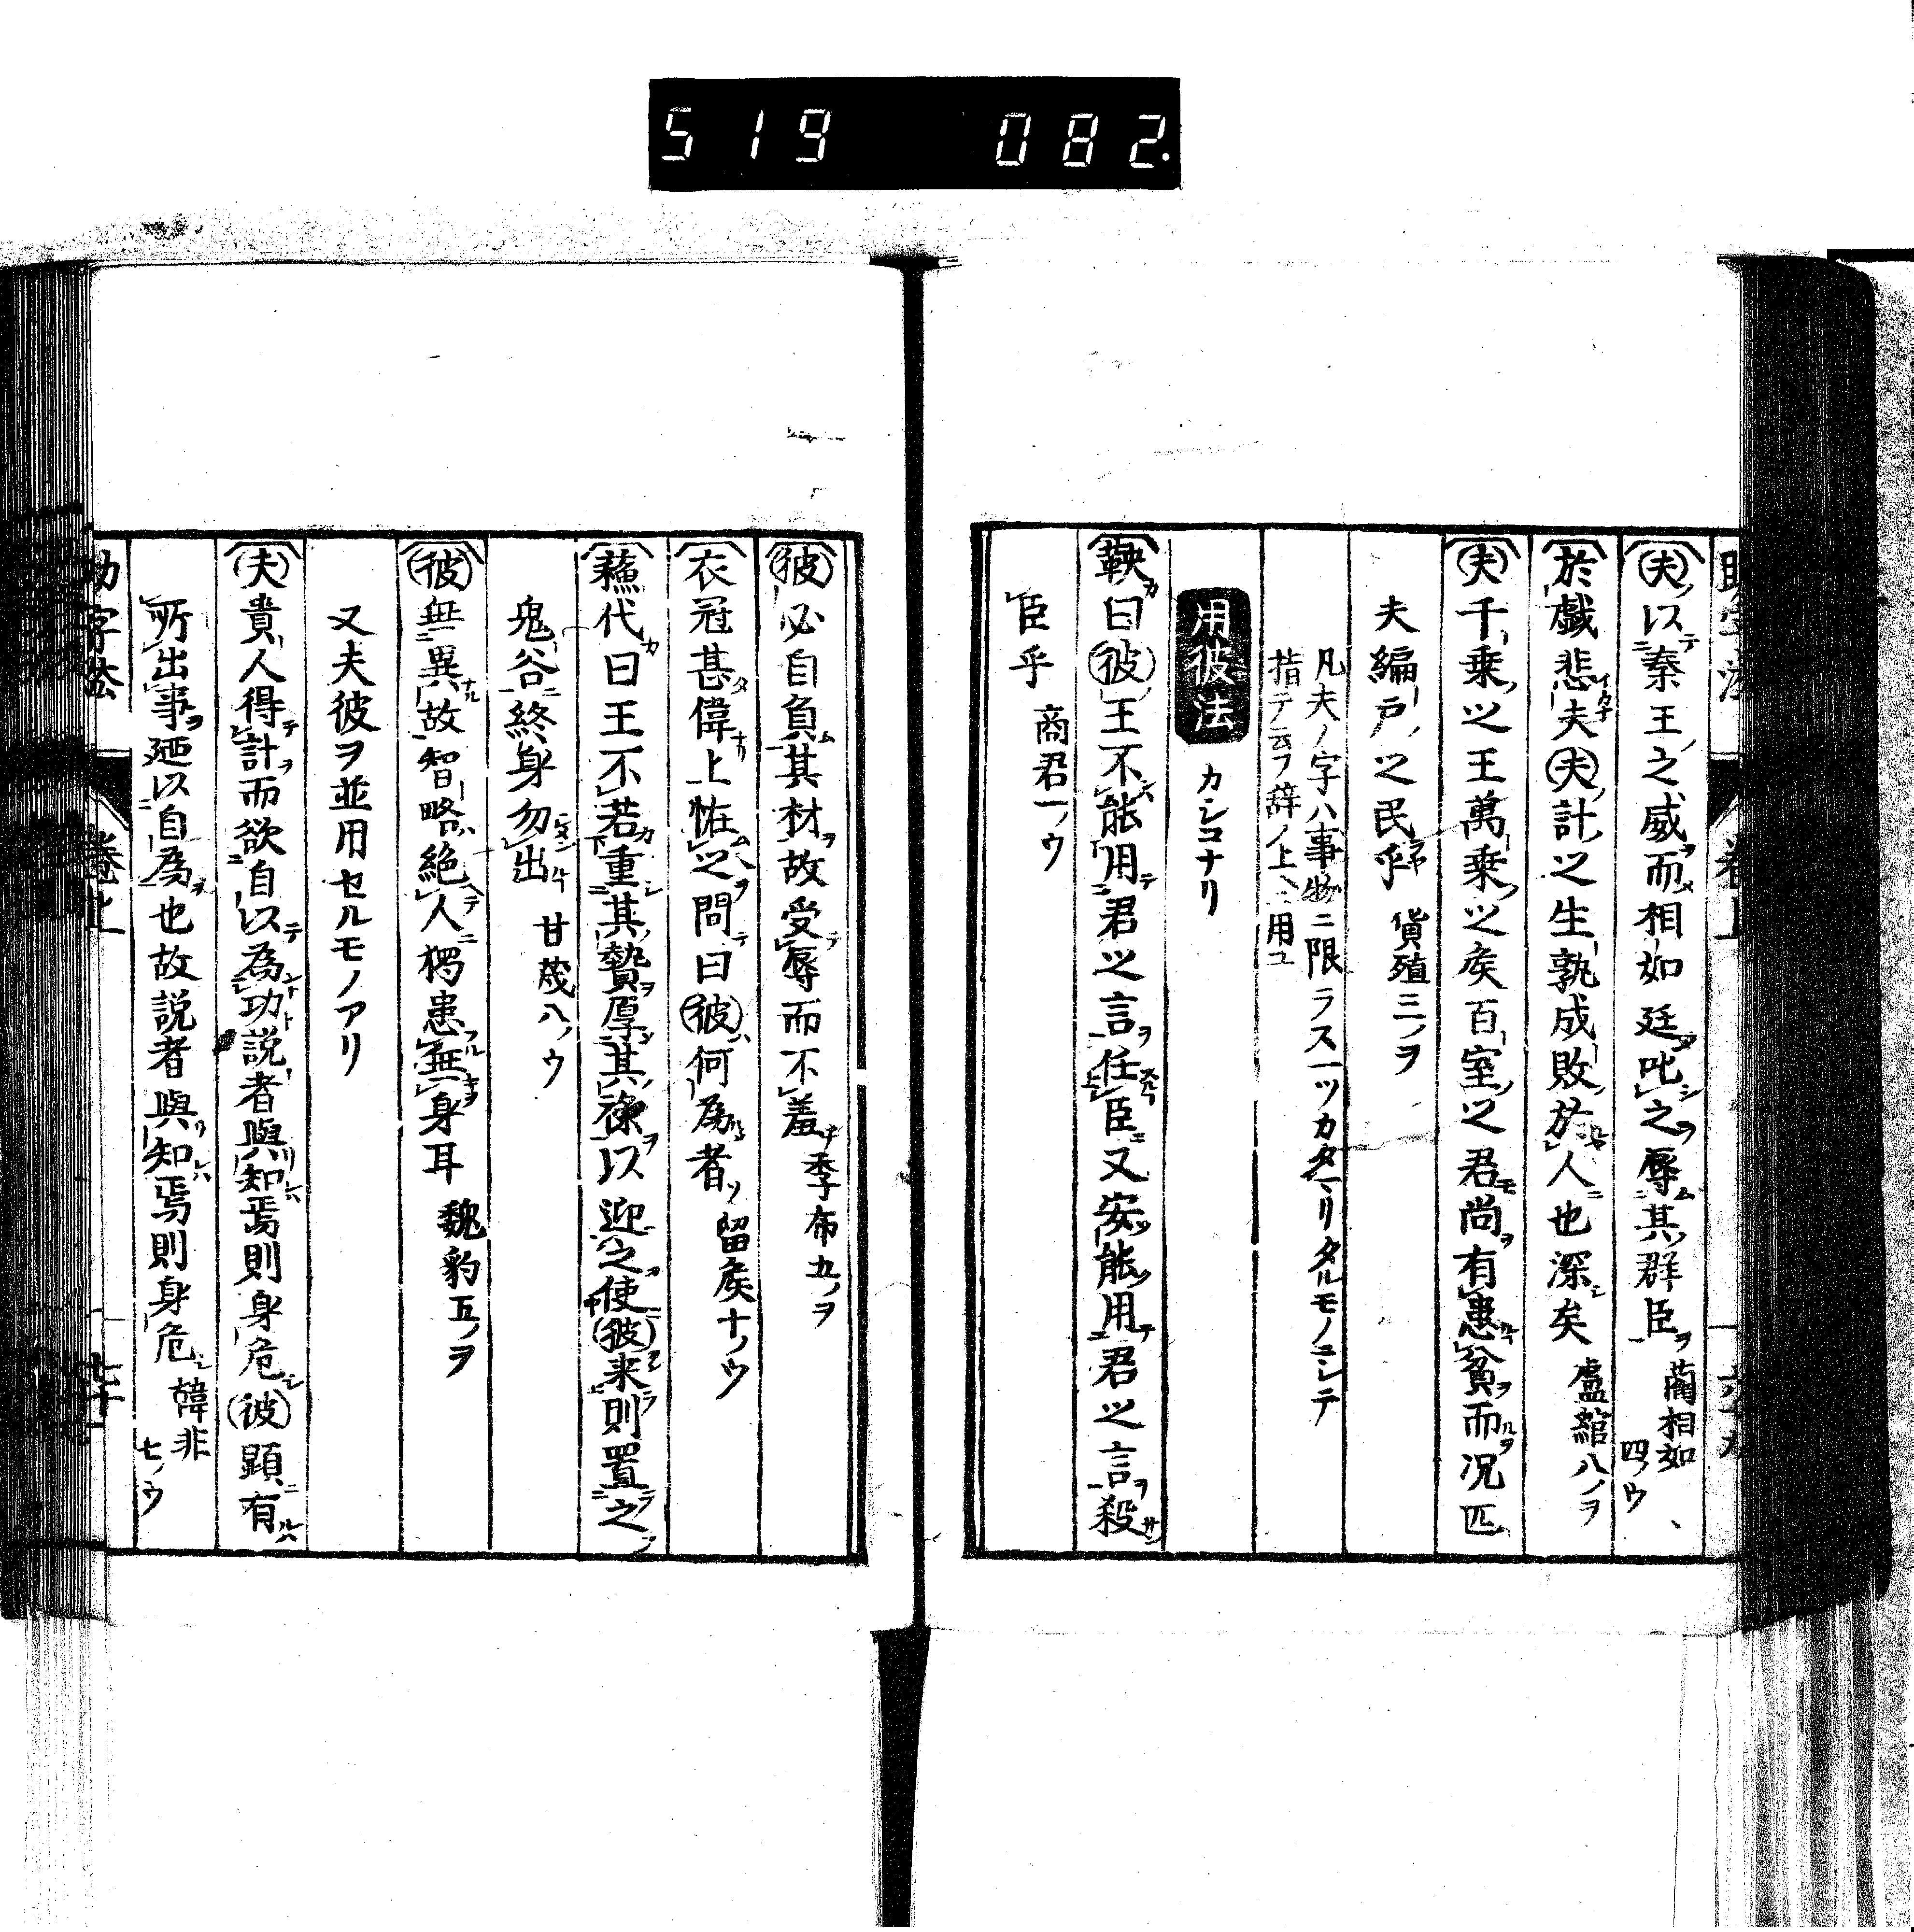 519 082.
夫以秦王之威而相如廷叱之辱其群臣 藺相如四ノウ
於戯悲夫夫計之生孰成敗於人也深矣 盧綰八ノヲ
夫千乗之王萬乗之矦百室之君尚有患貧而况匹
夫編戸之民乎 貨殖三ノヲ
凡夫ノ字ハ事物ニ限ラス一ツカタマリタルモノニシテ
指テ云フ辞ノ上ニ用ユ
用彼法 カシコナリ
鞅曰彼王不能用君之言任臣又安能用君之言殺
臣乎 商君一ノウ
彼必自負其材故受辱而不羞 季布五ノヲ
衣冠甚偉上恠之問曰彼何為者 留矦十ノウ
蘓代曰王不若重其贄厚其禄以迎之使彼来則置之
鬼谷終身勿出 甘茂八ノウ
彼無異故智略絶人獨患無身耳 魏豹五ノヲ
又夫彼ヲ並用セルモノアリ
夫貴人得計而欲自以為功説者與知焉則身危彼顕有
所出事廼以自為也故説者與知焉則身危 韓非七ノウ
助字法 巻上 七十